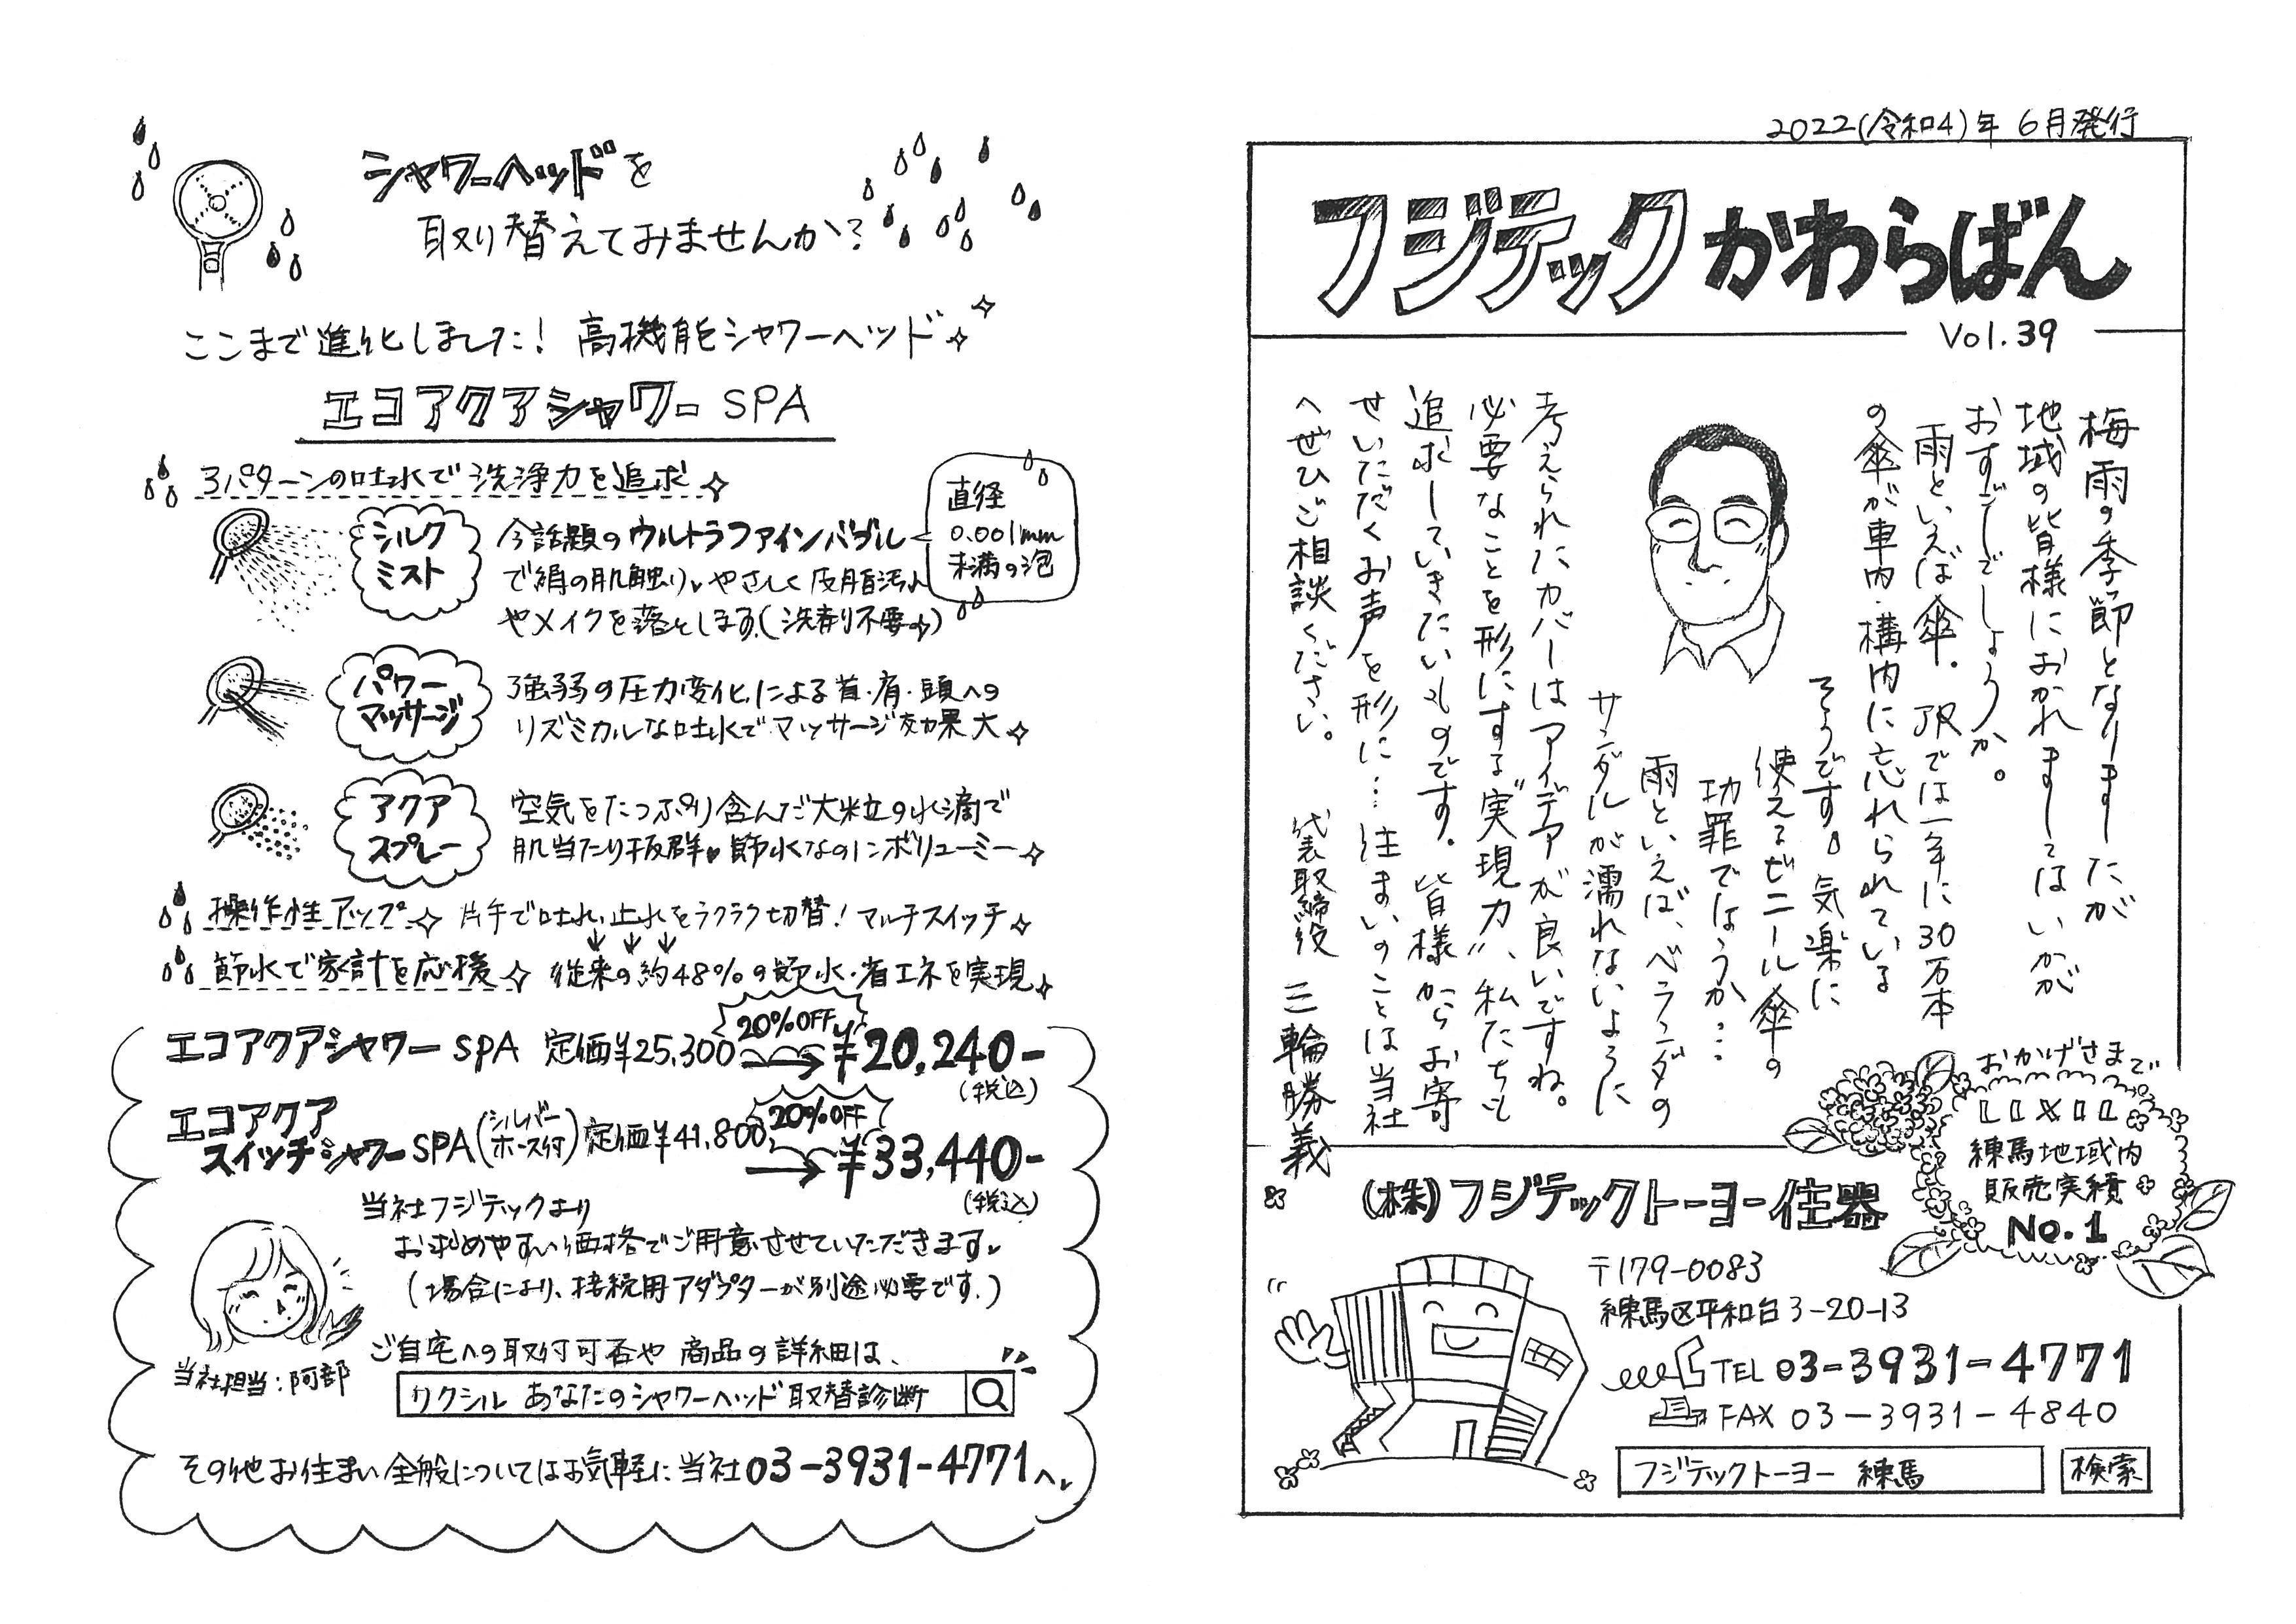 シャワーヘッドを
取り替えてみませんか?
ここまで進化しました! 高機能シャワーヘッド
エコアクアシャワー SPA
3パターンの吐水で洗浄力を追求
シルク
ミスト
今話題のウルトラファインバブル
で絹の肌触り。やさしく皮脂汚れ
やメイクを落とします。(洗剤不要)
直径
0.001mm
未満の泡
パワー
マッサージ
強弱の圧力変化による首・肩・頭への
リズミカルな吐水でマッサージ効果大
アクア
スプレー
空気をたっぷり含んだ大粒の水滴で
肌当たり抜群♥節水なのにボリューミー
操作性アップ 片手で吐水、止水をラクラク切替! マルチスイッチ
節水で家計を応援 従来の約48%の節水・省エネを実現
エコアクアシャワー SPA 定価¥25,300 20%OFF → ¥20,240-
(税込)
エコアクア
スイッチシャワー SPA (シルバーホース付) 定価¥41,800 20%OFF → ¥33,440-
(税込)
当社フジテックより
お求めやすい価格でご用意させていただきます
(場合により、接続用アダプターが別途必要です。)
当社担当:阿部
ご自宅への取付可否や商品の詳細は、
リクシル あなたのシャワーヘッド取替診断
その他お住まい全般についてはお気軽に当社03-3931-4771へ
2022(令和4)年 6月発行
フジテックかわらばん
Vol.39
梅雨の季節となりましたが
地域の皆様におかれましてはいかが
おすごしでしょうか。
雨といえば傘。JRでは一年に30万本
の傘が車内・構内に忘れられている
そうです。気楽に
使えるビニール傘の
功罪でしょうか…
雨といえば、ベランダの
サンダルが濡れないように
考えられたカバーはアイデアが良いですね。
必要なことを形にする“実現力”、私たちも
追求していきたいものです。皆様からお寄
せいただくお声を形に…住まいのことは当社
へぜひご相談ください。
代表取締役 三輪勝義
おかげさまで
LIXIL
練馬地域内
販売実績
No.1
(株)フジテックトーヨー住器
〒179-0083
練馬区平和台3-20-13
TEL 03-3931-4771
FAX 03-3931-4840
フジテックトーヨー 練馬 検索